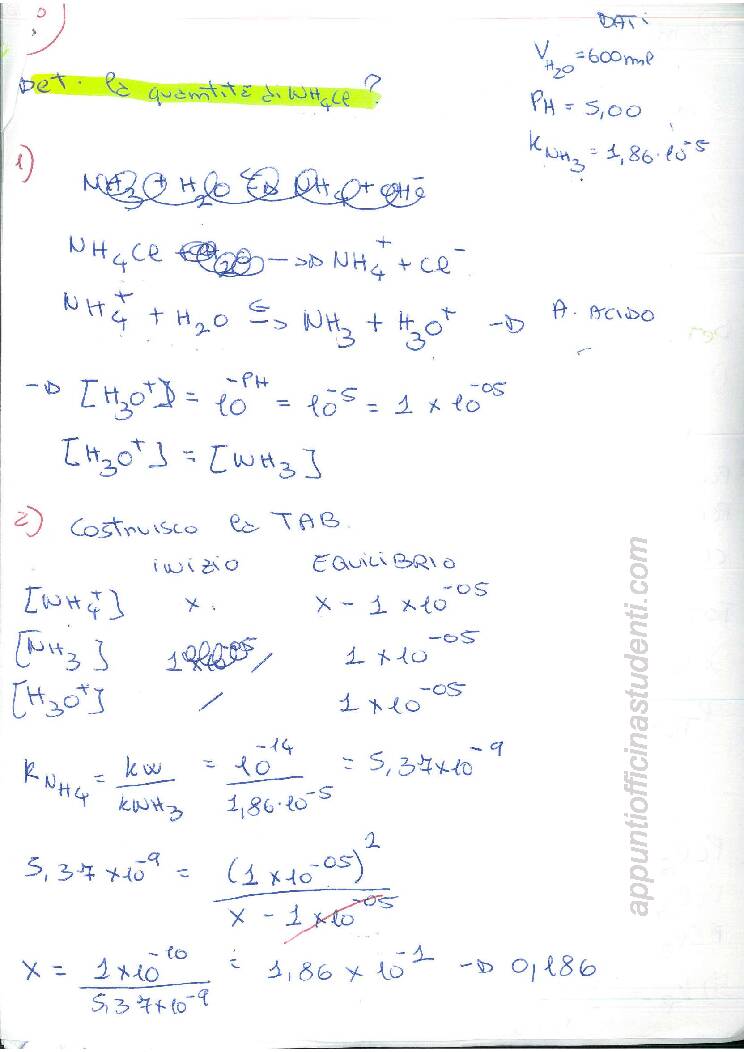 DATI
V H2O = 600 ml
PH = 5,00
K NH3 = 1,86·10^-5
Det. la quantità di NH4Cl?
1)
NH3 + H2O ⇆ NH4 + OH^-
NH4Cl → NH4^+ + Cl^-
NH4^+ + H2O ⇆ NH3 + H3O^+ → A. ACIDO
→ [H3O^+] = 10^-PH = 10^-5 = 1 × 10^-05
[H3O^+] = [NH3]
2) COSTRUISCO la TAB.
INIZIO EQUILIBRIO
[NH4^+] x. x - 1 × 10^-05
[NH3] / 1 × 10^-05
[H3O^+] / 1 × 10^-05
K NH4 = kw / kNH3 = 10^-14 / 1,86·10^-5 = 5,37×10^-9
5,37×10^-9 = (1 × 10^-05)^2 / x - 1 × 10^-05
x = 1×10^-10 / 5,37×10^-9 = 1,86 × 10^-1 → 0,186
appuntiofficinastudenti.com